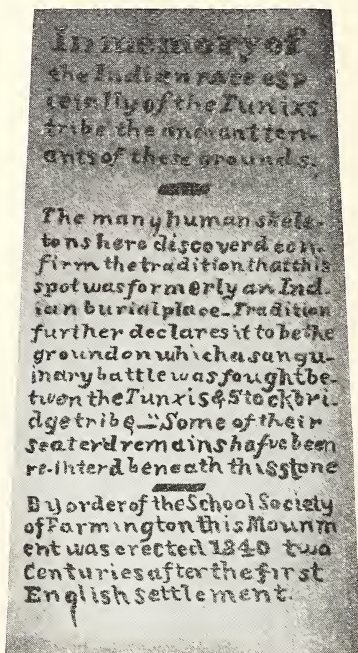 In memory of
the Indian race esp
icially of the Tunixs
tribe the anchant ten-
ants of these grounds.
The many human skele-
tons here discoverd con-
firm the tradition that this
spot was formerly an Ind-
ian burial place - Tradition
further declares it to be the
ground on which a sangu-
inary battle was fought be-
twen the Tunxis & Stockbri-
dge tribe - Some of their
scaterd remains hafve been
re-interd beneath this stone
By order of the School Society
of Farmington this Mounm
ent was erected 1840 two
Centuries after the first
English settlement.